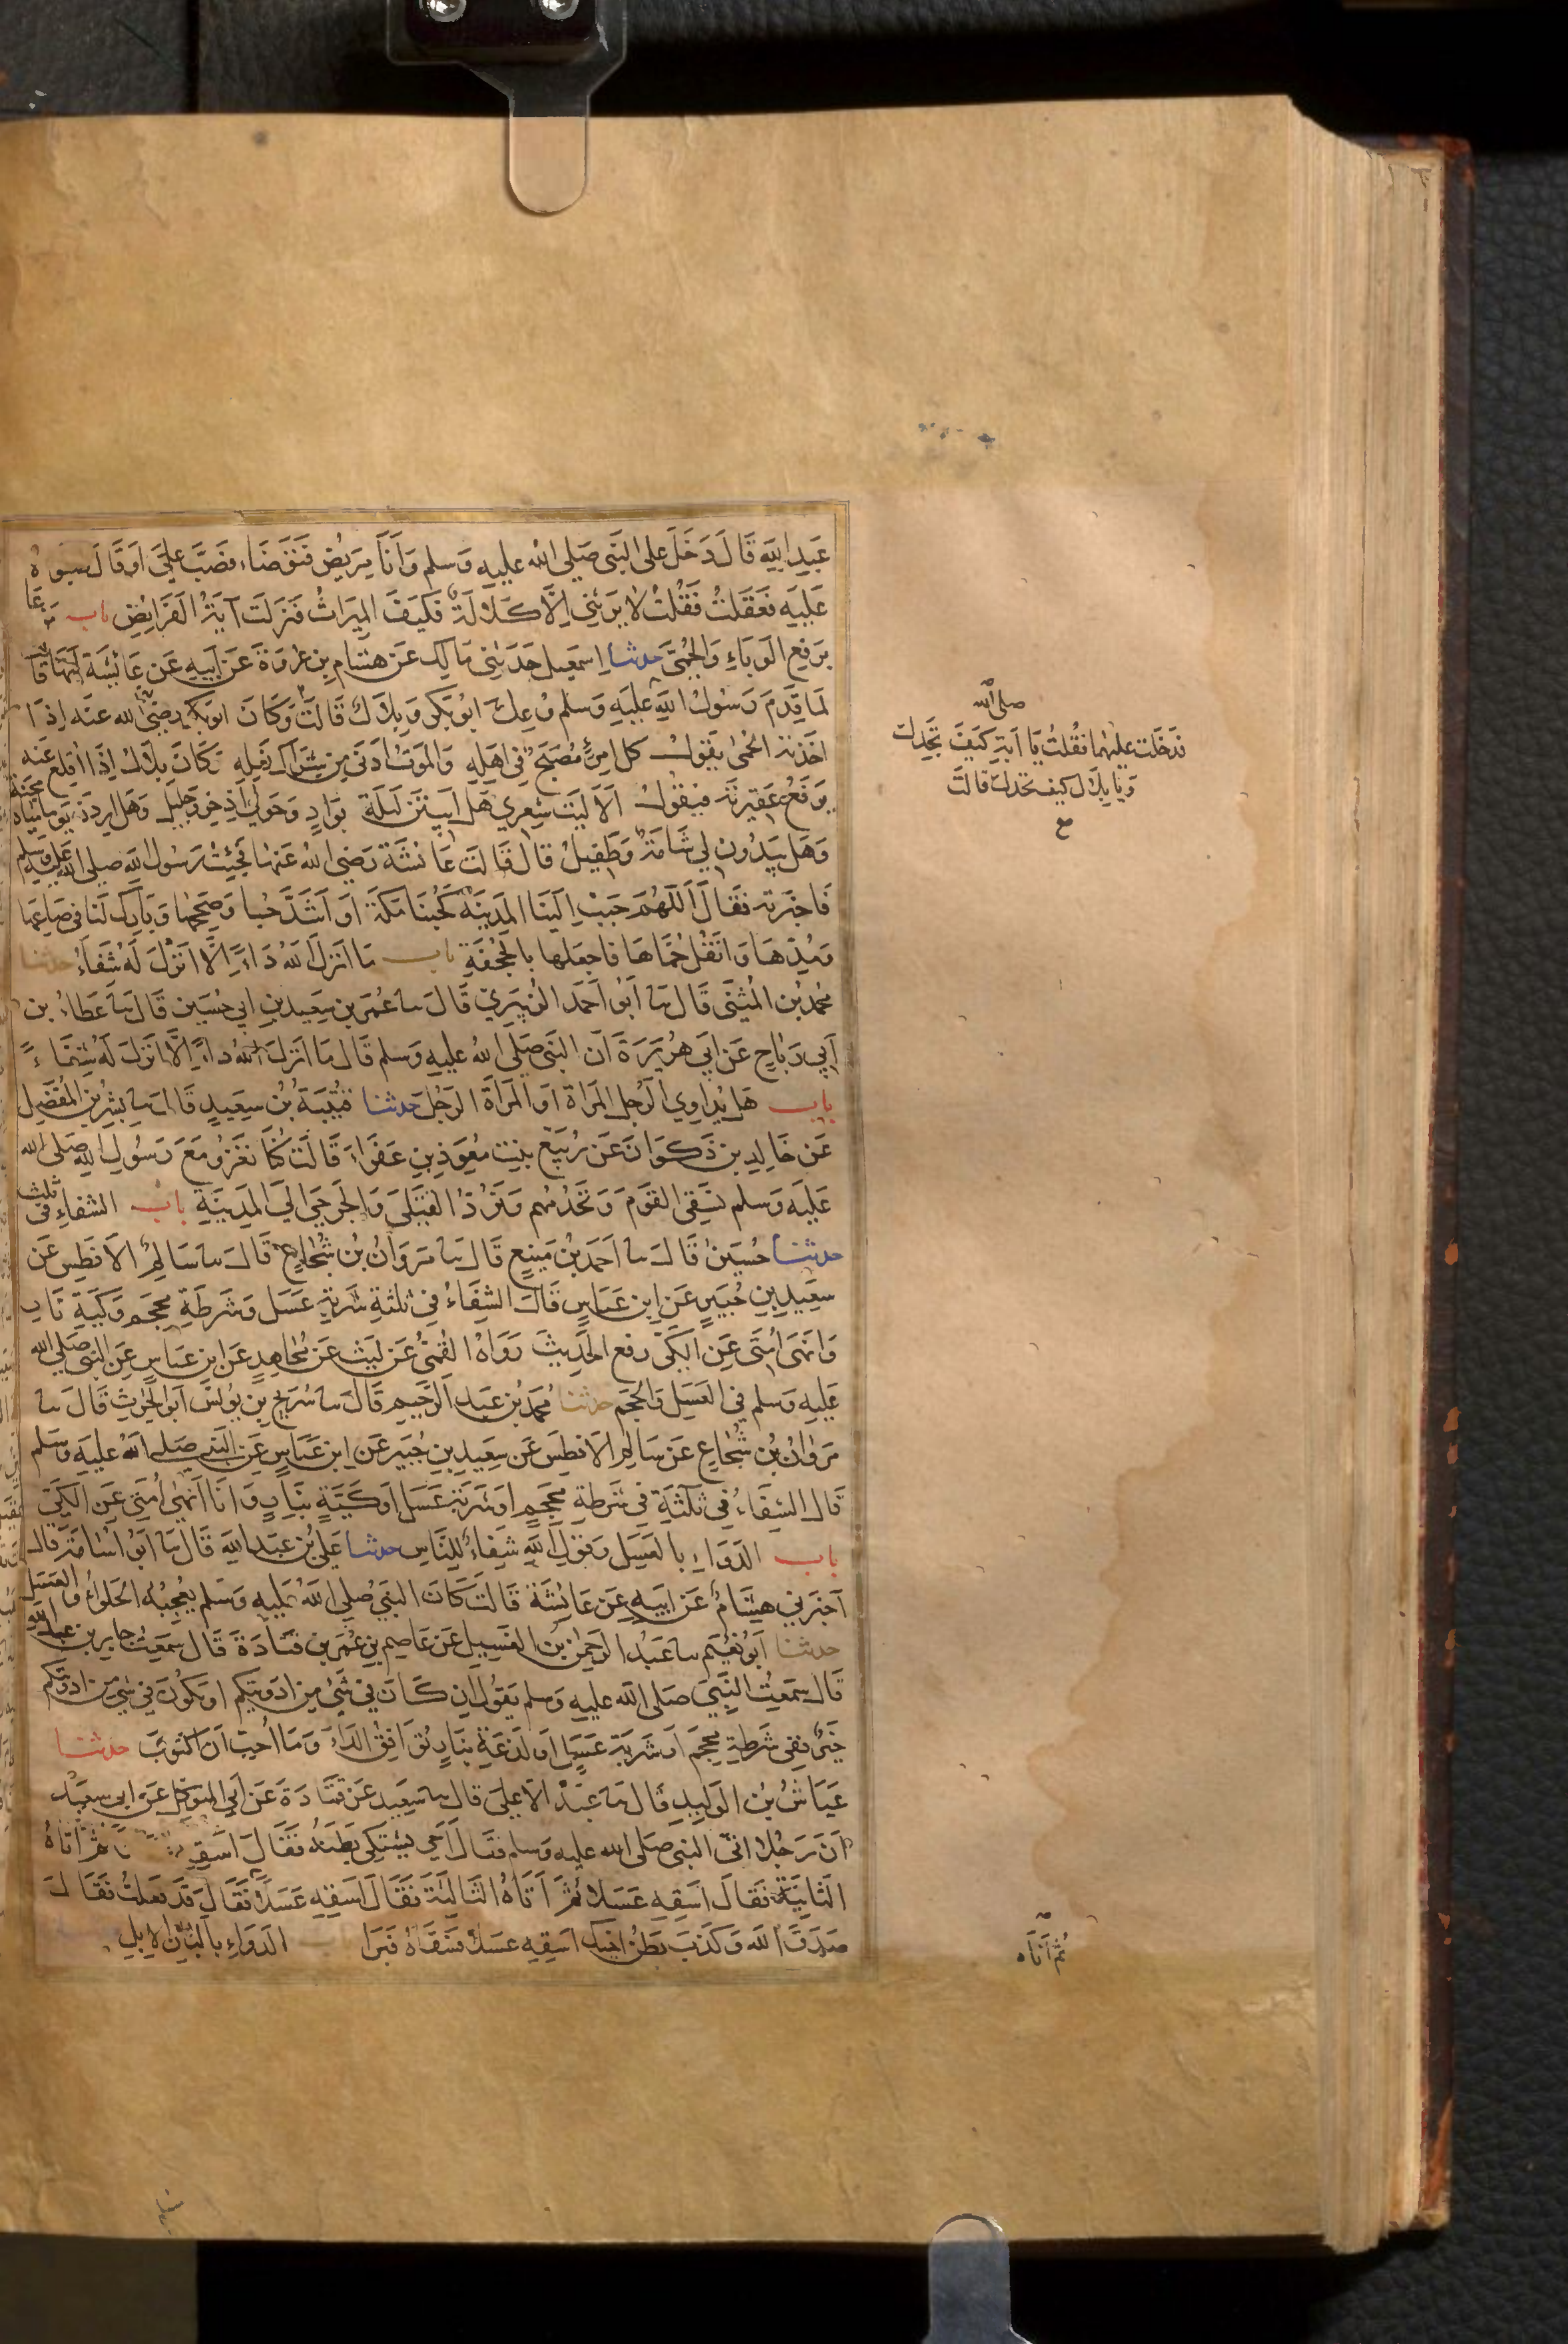 عَبدِ اللّهِ قَالَ دَخَلَ علَى النَّبى صَلى الله عليه وَسلم وَاَنَا مَرِيضٌ فَتَوَضّاءَ فَصَبَّ عَلَىَّ اَو قَالَ صُبوهُ
عَلَيهِ فَعَقَلتُ فَقُلتُ لا يَرِثُنِى اِلَّا كَلَالَة فكَيفَ المِيرَاثُ فَنَزلَت آيَةُ الفَرَائِض باب مَن دَعَا
بِرَفعِ الوَبَاءِ وَالحُمَّى حدثنا اِسمَعِيل حَدَثَنِى مَالِك عَن هشَام بِن عُروَةَ عَن اَبِيهِ عَن عَائِشَة اَنَّهَا قَا
لَمَا قَدَمَ رَسُولُ اللهِ عَليَه وَسلم وُعِكَ اَبُو بَكر وَبِلَال قَالَت وَكَانَ اَبُو بَكر رضَى الله عَنه اِذَا
اخَذَته الحُمىٰ يَقولُ كل امرِئٍ مُصَبَحٌ فِى اَهلِهِ وَالمَوتُ اَدنَى مِن شِرَاك نَعلِهِ وَكَانَ بِلَالُ اِذَا اُقلِعَ عَنهُ
يَرفَعُ عَقِيرَتَهُ فيَقُولُ اَلَا لَيتَ شِعرِي هَل اَبِيتَن لَيلَة بوَادٍ وَحَولِي اِذخِر وجَلِيل وَهَل اَرِدَن يَومًا مِيَاهَ مَجَنَّةٍ
وَهَل يَبدُون لِي شَامَةٌ وَطَفِيلُ قالَ قَالَت عَائشَة رَضِى اللهُ عَنهَا فَجِئتُ رَسُولَ اللهِ صلى الله عَليه وَسلم
فَاخبَرتهُ فَقَالَ اللَهُمَ حَبِب اِلَينَا المَدِينَة كَحُبِنَا مَكَة اَو اَشَدَّ حُبا وَصَحِحهَا وَبَارِك لَنَا فى صَاعِهَا
وَمُدِّهَا وَانقُل حُمَّاهَا فاجعَلهَا بِالجُحفَةِ باب مَا اَنزَلَ اللهُ دَاءً اِلَّا اَنزَلَ لَهُ شِفَاءً حدثنا
مُحَمَد بُن المُثَنَّى قَالَ نا اَبُو اَحمَد الزُبَيرِي قَالَ نا عُمَر بن سَعِيد بنِ اَبِي حُسَين قَالَ نا عَطَاءُ بن
اَبِي رَبَاحٍ عَن اَبِي هُرَيرَة اَن النَّبى صَلَى اللهُ عليهِ وَسلم قَالَ مَا اَنزَلَ اللهُ دَاءً اِلَّا اَنزَلَ لَهُ شِفَاءً
باب هَل يُدَاوِي الرَجُل المَرأَة اَو المَرأَة الرَجُلَ حَدثنا قُتَيبَةُ بُن سَعِيدٍ قَالَ نا بِشر بن المُفَضلِ
عَن خَالِدِ بن ذَكوَانَ عَن رُبَيِّع بِنتِ مُعَوِذِ بنِ عَفرَاءَ قَالَت كُنَّا نَغزُو مَعَ رَسُولِ اللهِ صَلى الله
عَليَه وَسلم نَسقِى القَومَ وَنَخدُمُهم وَنَرُدّ القَتلَى وَالجَرحَى اِلَي المَدِينَةِ باب الشفاءِ فى ثَلث
حدثنا حُسَينٌ قَالَ نا اَحمَد بُن مَنِيعٍ قَالَ نا مَروَانُ بُن شُجَاعٍ قَالَ نا سَالِمٌ الاَفطَسِ عَن
سَعِيدِ بِنِ جُبَيرٍ عَن اِبنِ عَبَاسٍ قَالَ الشِفَاءُ فِى ثلثَةٍ شَربَةِ عَسَلٍ وَشَرطَةِ مِحجَمٍ وَكَيَّةِ نَارٍ
وَاَنهَى اُمَتِى عَنِ الكَىّ رفَعَ الحَدِيثَ رَوَاهُ القُمِّىُّ عَن لَيثٍ عَن مُجَاهِدٍ عَن ابنِ عَبَاسٍ عَنِ النَبى صَلى الله
عَليِهِ وَسلم فِي العَسَلِ وَالحَجمِ حدثنا مُحمَدُ بُن عَبد الرَّحِيمِ قَالَ نا سُرَيج بن يُونُسَ اَبُو الحرث قَالَ نا
مَروَانُ بُن شُجَاعٍ عَن سَالِمٍ الاَفطسِ عَن سَعِيدِ بِنِ جُبَير عَنِ ابن عَبَاسٍ عَنِ النَبى صَلى اللهُ عليَه وَسَلم
قَالَ الشِفَاءُ فِي ثَلَثَةٍ فِي شَرطَةِ مِحجَمٍ اَو شَربَةِ عَسَل اَو كَيَّةٍ بِنَارٍ وَاَنَا اَنهَىٰ اُمَتِى عَنِ الكَىِّ
باب الدَوَاءِ بِالعَسَل وَقَولِ اللهِ شِفَاءٌ لِلنَّاسِ حدثنا عَلِيُ بُن عَبدِ اللهِ قَالَ نا اَبُو اُسَامَة قَالَ
اَخبَرَنِي هِشَامٌ عَن اَبِيهِ عَن عَائِشَةَ قَالَت كَانَ النبَيُ صَلى اللهُ عَليِهِ وَسَلم يُعجِبُهُ الحَلوَاءُ وَالعَسَل
حدثنا اَبُو نُعَيم نا عَبدُ الرَحمٰنِ بُن الغَسِيلِ عَن عَاصِم بِن عُمَر بن قتَادَةَ قَالَ سَمعتُ جَابِر بن عَبد اللهِ
قَالَ سَمِعتُ النَّبِىَ صَلَى الله عَليهِ وَسلم يَقُولُ اِن كَانَ فِي شَيءٍ مِن اَدوِيَتِكم اَو يَكُونُ فِي شَيءٍ من اَدوِيَتِكم
خَيرٌ فَفِى شَرطَةِ مِحجَمٍ اَو شَربَةِ عَسَلٍ اَو لَذعَةٍ بِنَارٍ تُوَافِقُ الدَاءَ وَمَا اُحِبُ اَن اَكتَوِيَ حدثنا
عَيَاشُ بُن الوَليِدِ قَالَ نا عَبدُ الاَعلىَ قَالَ نا سَعِيد عَن قتَادَةَ عَن اَبِي المتَوكِل عَن ابى سعِيد
اَنَ رَجُلا اَتى النَبىَ صَلى الله عليهِ وَسلم فَقالَ اَخِي يَشتَكِى بَطنَهُ فَقَالَ اسقِهِ ثُمَّ اَتَاهُ
الثَانِيَة فَقَالَ اسقِهِ عَسَلا ثُمَّ اَتَاهُ الثَالِثَةَ فَقَالَ اسقِهِ عَسَلًا فَقَالَ قَد فَعَلتُ فَقَالَ
صَدَقَ اللهُ وَكَذَبَ بَطنُ اَخِيكَ اسقِهِ عسَلًا فسَقَاهُ فَبَرَا الدَوَاءِ بِالبَانِ الاِبِلِ
صلى الله
فدَخَلت عليهما فقُلتُ يَا اَبَةِ كَيفَ تَجِدُكَ
وَيَا بِلَال كيف تجدك قالَت
صح
ثُمَّ اَتَاه